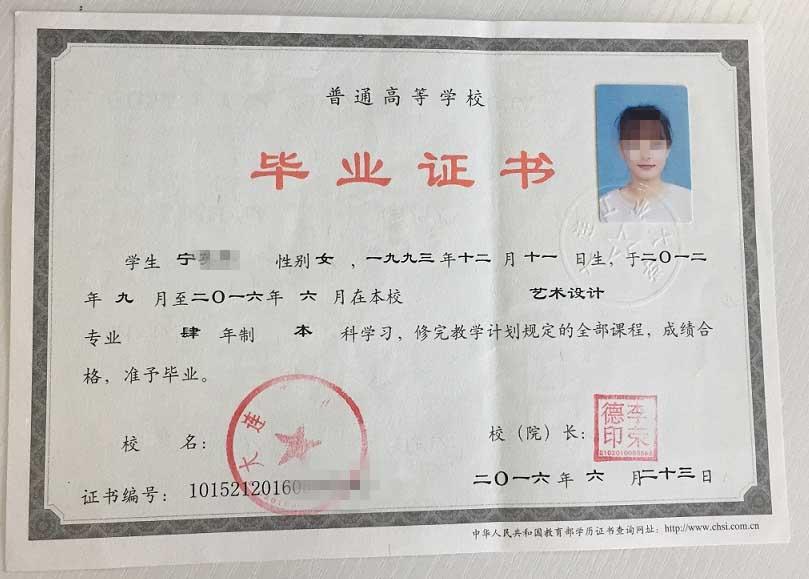 普通高等学校
毕业证书
学生 宁 性别 女 ，一九九三 年 十二 月 十一 日生，于二〇一二
年 九 月至二〇一六年 六 月在本校 艺术设计
专业 肆 年制 本 科学习，修完教学计划规定的全部课程，成绩合
格，准予毕业。
大连
校 名：
校（院）长：
李荣德印
证书编号：10152120160
二〇一六 年 六 月二十三日
中华人民共和国教育部学历证书查询网址：http://www.chsi.com.cn